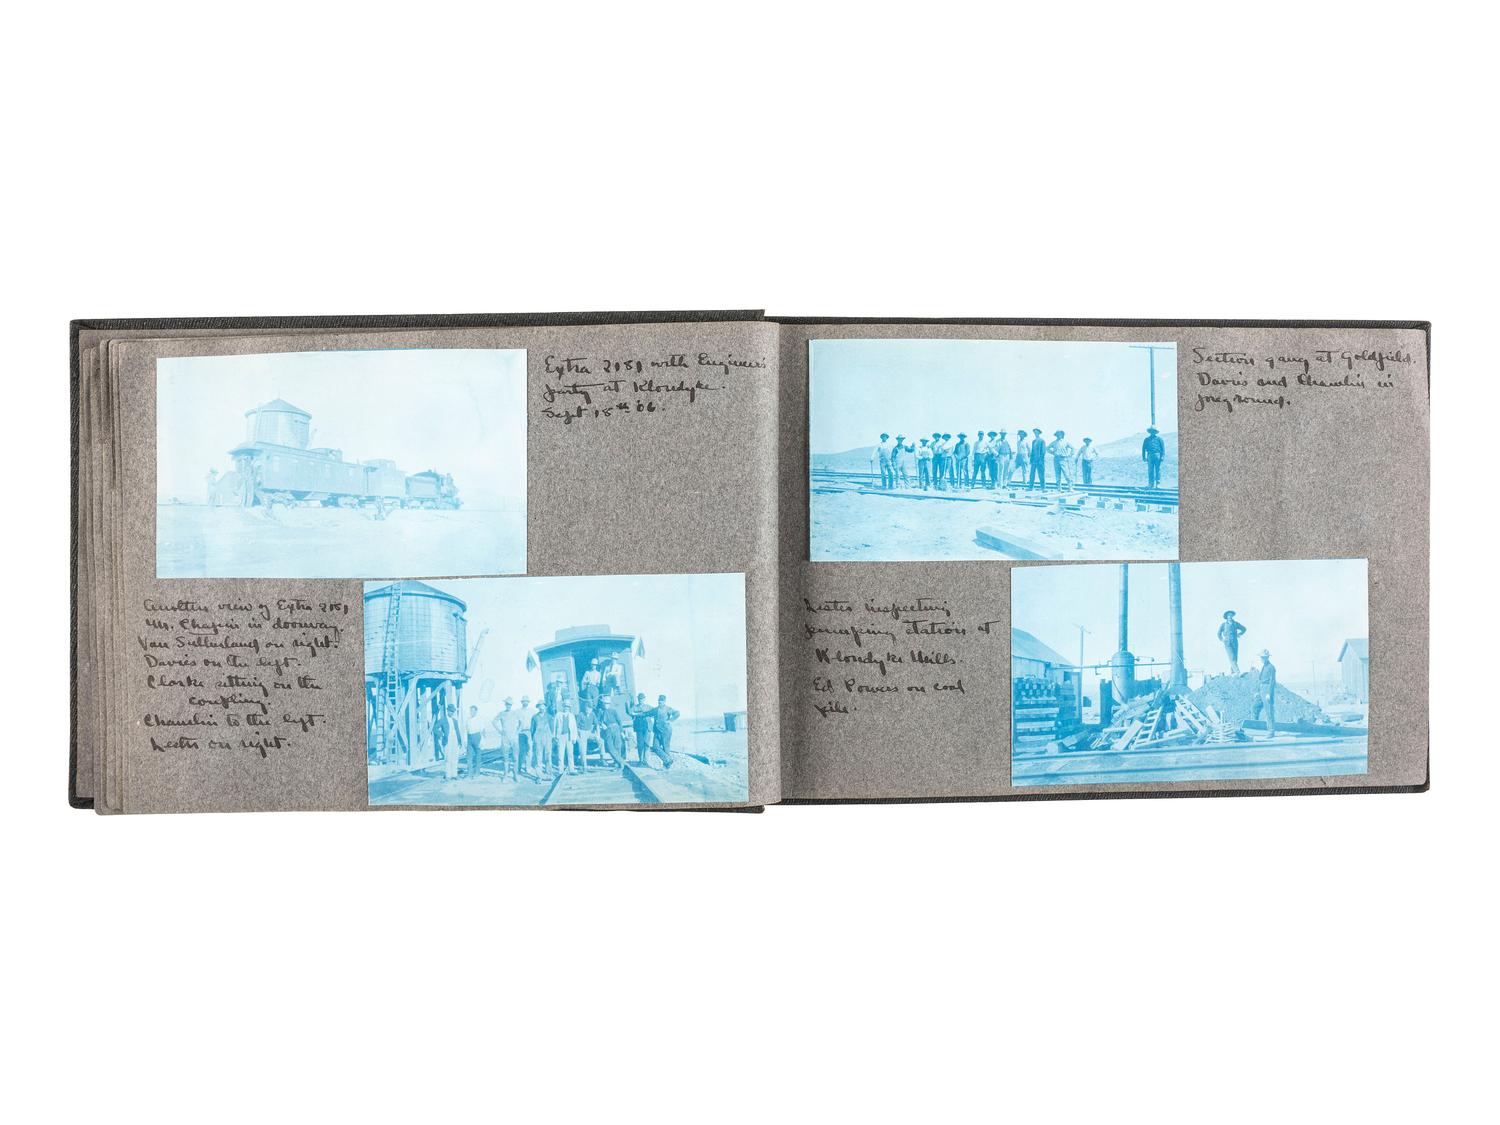 Extra 2181 with Engineer's
party at Klondyke.
Sept 18th '06.
Another view of Extra 2181
Mr. Chapin in doorway.
Van Sullusland on right.
Davis on the left.
Clarke sitting on the
coupling.
Chamlin to the left.
Lester on right.
Section gang at Goldfield.
Davis and Chamlin in
foreground.
Lester inspecting
pumping station at
Klondyke Wells.
Ed Powers on coal
pile.